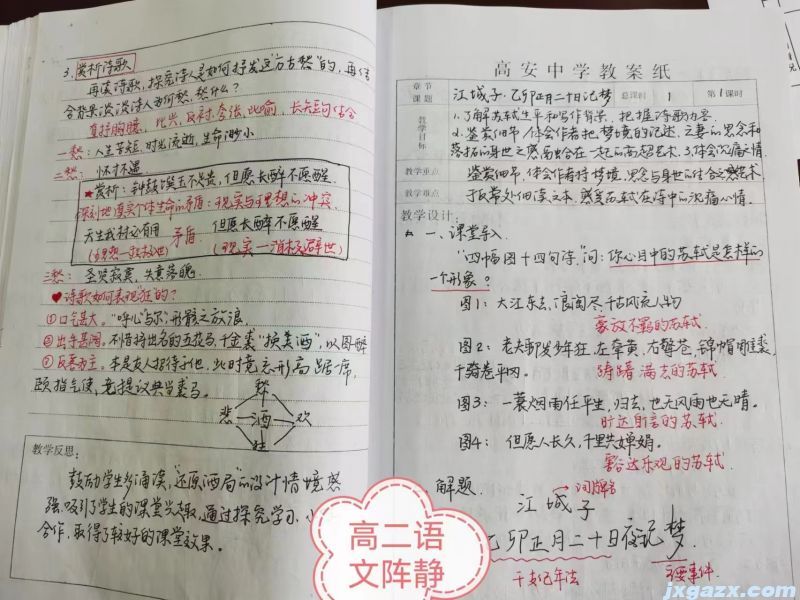 3. 赏析诗歌
再读诗歌，探究诗人是如何抒发这"万古愁"的，再结
合背景谈谈诗人为何愁，愁什么？
直抒胸臆，比兴、反衬、夸张、比喻，长短句结合
一愁：人生苦短，时光流逝，生命渺小
二愁：怀才不遇
★赏析：钟鼓馔玉不足贵，但愿长醉不愿醒
深刻地道实个体生命的矛盾：现实与理想的冲突
天生我材必有用 矛盾 但愿长醉不愿醒
三愁：圣贤寂寞，失意落魄
♥诗歌如何表现"狂"的？
①口气甚大。"呼儿""与尔"，形骸之放浪
②出手甚阔。不惜将出名的五花马、千金裘"换美酒"，以图醉
③反客为主。本是友人招待于他，此时竟忘形高踞一席，
颐指气使，竟提议典当裘马。
愁
悲 酒 欢
狂
教学反思：
鼓励学生多诵读，"还原酒局"的设计情境感
强，吸引了学生的课堂兴趣，通过探究学习，小
合作，取得了较好的课堂效果。
高安中学教案纸
章节
课题 江城子·乙卯正月二十日记梦 总课时 1 第1课时
教学目标
1.了解苏轼生平和写作背景，把握诗歌内容。
2.鉴赏细节，体会作者把梦境的记述，亡妻的思念和
落拓的身世之感融合在一起的高超艺术。3.体会沉痛之情
教学重点 鉴赏细节，体会作者将梦境，思念与身世结合之感艺术
教学难点 于反常处细读文本，感受苏轼在诗中的沉痛心情。
教学设计：
一、课堂导入
"四幅图十四句诗"，问：你心目中的苏轼是怎样的
一个形象？
图1：大江东去，浪淘尽，千古风流人物
豪放不羁的苏轼
图2：老夫聊发少年狂，左牵黄，右擎苍，锦帽貂裘，
千骑卷平冈。
踌躇满志的苏轼
图3：一蓑烟雨任平生，归去，也无风雨也无晴。
旷达自若的苏轼
图4：但愿人长久，千里共婵娟。
豁达乐观的苏轼
解题
词牌名
江城子
乙卯正月二十日夜记梦
干支纪年法 主要事件
高二语
文阵静
jxgazx.com